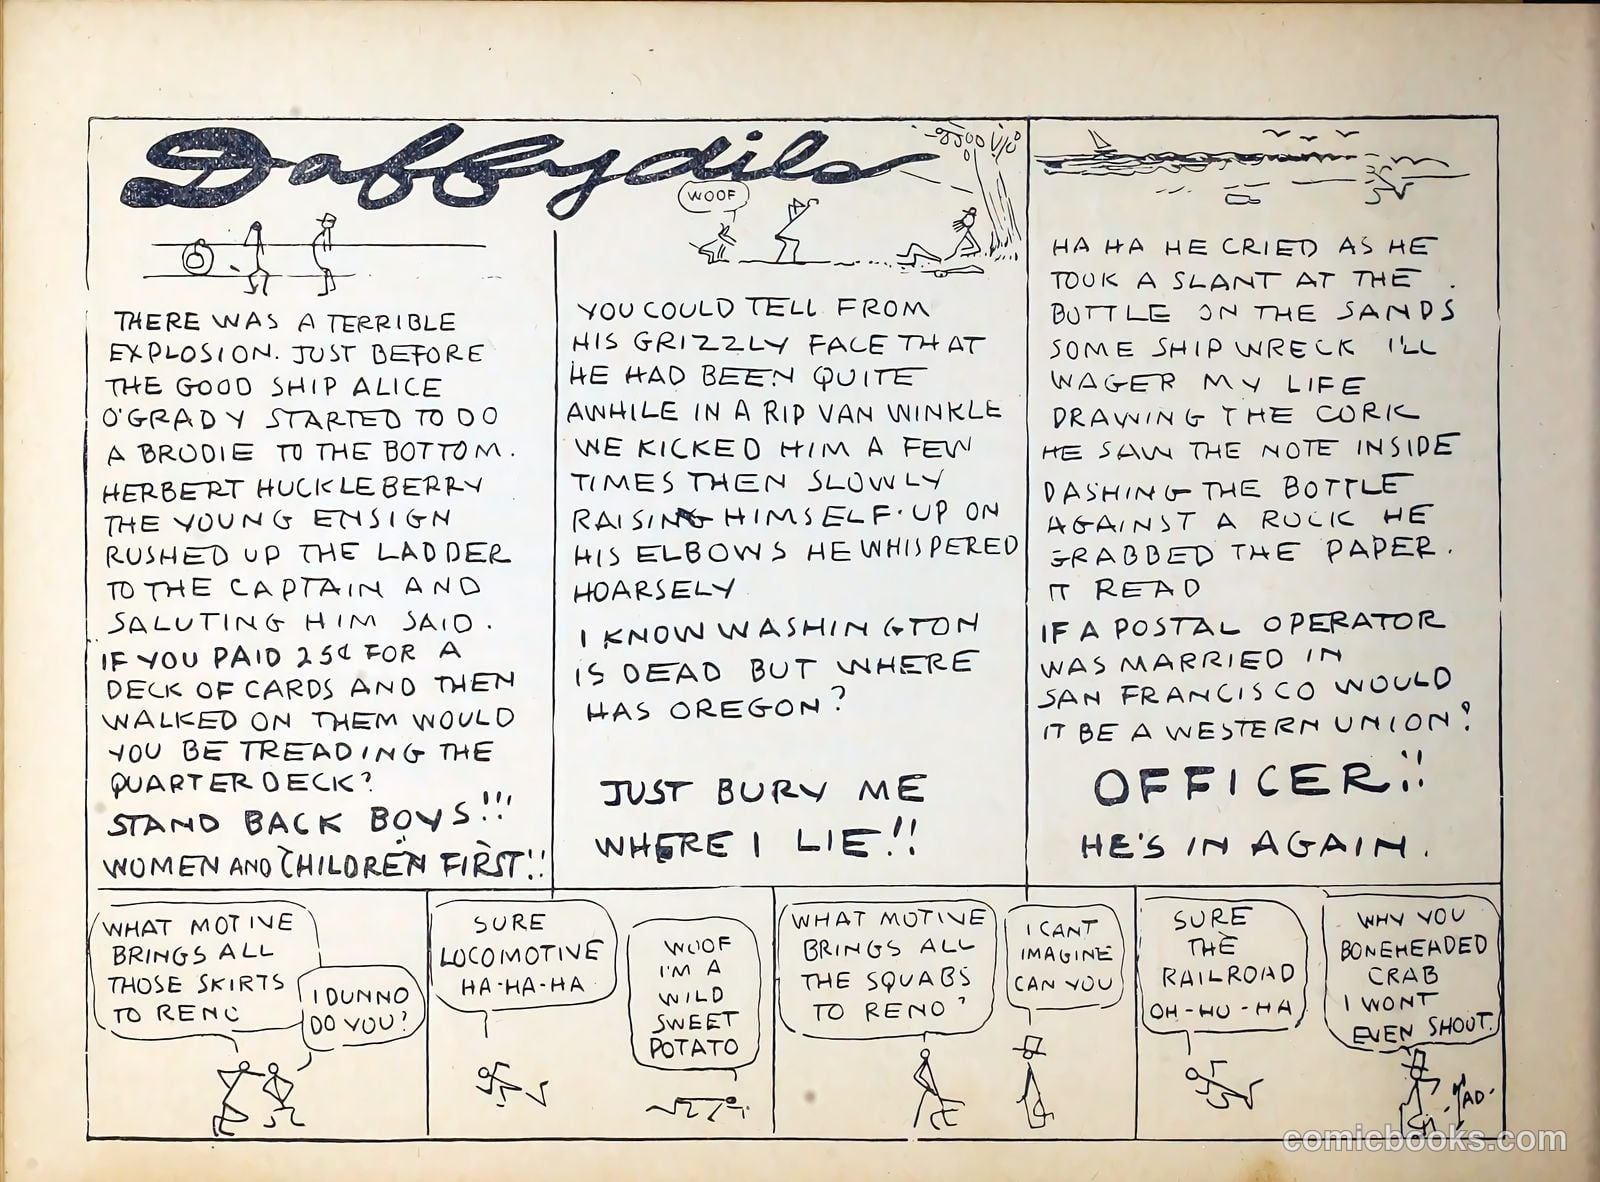 Daffydils
THERE WAS A TERRIBLE
EXPLOSION. JUST BEFORE
THE GOOD SHIP ALICE
O'GRADY STARTED TO DO
A BRODIE TO THE BOTTOM.
HERBERT HUCKLEBERRY
THE YOUNG ENSIGN
RUSHED UP THE LADDER
TO THE CAPTAIN AND
SALUTING HIM SAID.
IF YOU PAID 25¢ FOR A
DECK OF CARDS AND THEN
WALKED ON THEM WOULD
YOU BE TREADING THE
QUARTER DECK?
STAND BACK BOYS!!!
WOMEN AND CHILDREN FIRST!!
WOOF
YOU COULD TELL FROM
HIS GRIZZLY FACE THAT
HE HAD BEEN QUITE
AWHILE IN A RIP VAN WINKLE
WE KICKED HIM A FEW
TIMES THEN SLOWLY
RAISING HIMSELF UP ON
HIS ELBOWS HE WHISPERED
HOARSELY
I KNOW WASHINGTON
IS DEAD BUT WHERE
HAS OREGON?
JUST BURY ME
WHERE I LIE!!
HA HA HE CRIED AS HE
TOOK A SLANT AT THE
BOTTLE ON THE SANDS
SOME SHIPWRECK I'LL
WAGER MY LIFE
DRAWING THE CORK
HE SAW THE NOTE INSIDE
DASHING THE BOTTLE
AGAINST A ROCK HE
GRABBED THE PAPER.
IT READ
IF A POSTAL OPERATOR
WAS MARRIED IN
SAN FRANCISCO WOULD
IT BE A WESTERN UNION?
OFFICER!!
HE'S IN AGAIN.
WHAT MOTIVE
BRINGS ALL
THOSE SKIRTS
TO RENO
I DUNNO
DO YOU?
SURE
LOCOMOTIVE
HA-HA-HA
WOOF
I'M A
WILD
SWEET
POTATO
WHAT MOTIVE
BRINGS ALL
THE SQUABS
TO RENO?
I CANT
IMAGINE
CAN YOU
SURE
THE
RAILROAD
OH-HO-HA
WHY YOU
BONEHEADED
CRAB
I WONT
EVEN SHOUT.
TAD
comicbooks.com